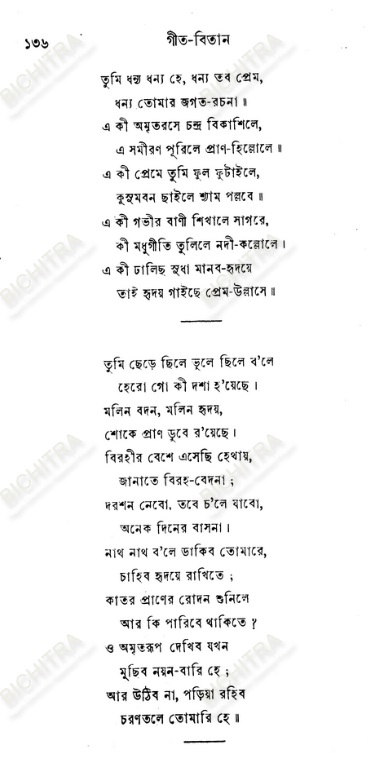 ১৩৬
গীত-বিতান
তুমি ধন্য ধন্য হে, ধন্য তব প্রেম,
ধন্য তোমার জগত-রচনা॥
এ কী অমৃতরসে চন্দ্র বিকাশিলে,
এ সমীরণ পূরিলে প্রাণ-হিল্লোলে॥
এ কী প্রেমে তুমি ফুল ফুটাইলে,
কুসুমবন ছাইলে শ্যাম পল্লবে॥
এ কী গভীর বাণী শিখালে সাগরে,
কী মধুগীতি তুলিলে নদী-কল্লোলে।
এ কী ঢালিছ সুধা মানব-হৃদয়ে
তাই হৃদয় গাইছে প্রেম-উল্লাসে॥
তুমি ছেড়ে ছিলে ভুলে ছিলে ব'লে
হেরো গো কী দশা হ'য়েছে।
মলিন বদন, মলিন হৃদয়,
শোকে প্রাণ ডুবে র'য়েছে।
বিরহীর বেশে এসেছি হেথায়,
জানাতে বিরহ-বেদনা;
দরশন নেবো, তবে চ'লে যাবো,
অনেক দিনের বাসনা।
নাথ নাথ ব'লে ডাকিব তোমারে,
চাহিব হৃদয়ে রাখিতে;
কাতর প্রাণের রোদন শুনিলে
আর কি পারিবে থাকিতে?
ও অমৃতরূপ দেখিব যখন
মুছিব নয়ন-বারি হে;
আর উঠিব না, পড়িয়া রহিব
চরণতলে তোমারি হে॥
BICHITRA
BICHITRA
BICHITRA
BICHITRA
BICHITRA
BICHITRA